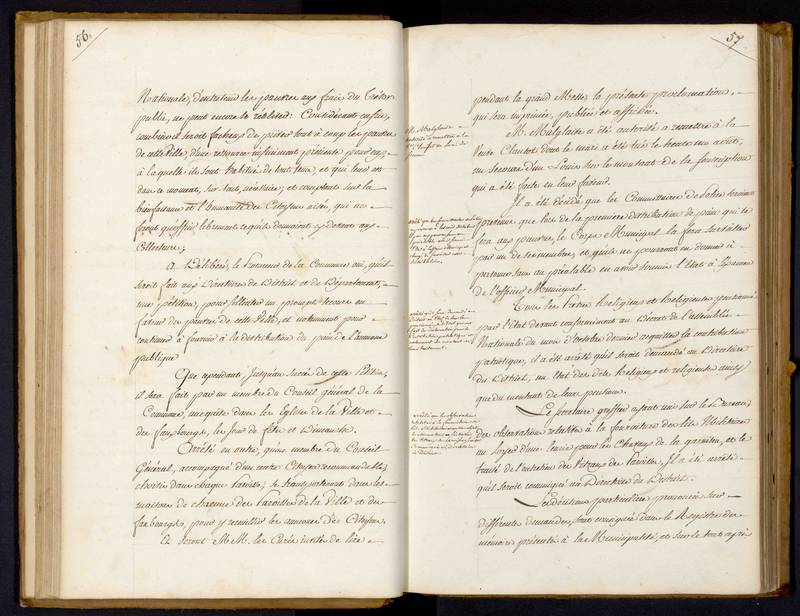 56.
Nationale, d'entretenir les pauvres aux frais du Trésor
public, ne peut encore se réaliser: Considérant enfin,
combien il seroit facheux de priver tout à coup les pauvres
de cette Ville, d'une ressource infiniment précieuse pour eux,
à laquelle ils sont habitués de tout tems, et qui leur est
dans ce moment, sur tout, nécessaire; et comptant sur la
bienfaisance et l'humanité des Citoyens aisés, qui ne
feront qu'offrir librement ce qu'ils donnoient ay devant aux
Collecteurs;
A Délibéré, le Procureur de la Commune oui, qu'il
seroit fait aux Directoires de District et de Département,
une pétition, pour solliciter un prompt secours en
faveur des pauvres de cette Ville, et notamment pour
continuer à fournir à la distribution du pain de l'aumone
publique
Que cependant, jusqu'au succès de cette Pétition,
il sera fait par un membre du Conseil général de la
Commune, une quête dans les Eglises de la Ville et
des fauxbourgs, les jours de fête et Dimanche.
Arrêté en outre, qu'un membre du Conseil
Général, accompagné d'un autre Citoyen recommandable,
choisis dans chaque Paroisse, se transporteront dans les
maisons de chacune des Paroisses de la Ville et des
fauxbourgs, pour y recueillir les aumones des Citoyens.
Et seront MM. les Curés invités de lire
57
pendant la grand Messe, la présente proclamation,
qui sera imprimée, publiée et affichée.
M. Malglaive
autorisé à remettre à la
M. Malglaive a été autorisé à remettre à la
Veuve Clautot dont le mari a été tué le trente un aout,
un secours d'un Louis sur le montant de la souscription
qui a été faite en leur faveur.
Il a été décidé que les Commissaires de Police seroient
prévenus que lors de la première distribution de pain qui se
fera aux pauvres, le Corps Municipal la fera surveiller
par un de ses membres, et qu'ils ne pourront en donner à
personne sans au préalable en avoir soumis l'Etat à l'examen
de l'officier Municipal.
Tous les Pretres Religieux et Religieuses pensionnés
par l'Etat devant conformément au Décret de l'assemblée
Nationale du mois d'octobre dernier acquitter la contribution
patriotique, il a été arrêté qu'il seroit demandé au Directoire
du District, un Etat des dits Religieux et religieuses ainsi
que du montant de leur pension.
Le secrétaire greffier ayant mis sur le Bureau,
des observations relatives à la fourniture des lits Militaires
au loyer d'une Ecurie pour les Chevaux de la garnison, et le
traité de l'entretien des Vitraux des Paroisses, Il a été arrêté
qu'il seroit communiqué au Directoire du District.
Les décisions particulières prononcées sur
différentes demandes, sont consignées dans le Registre des
mémoires présentés à la Municipalité, et sur le tout après